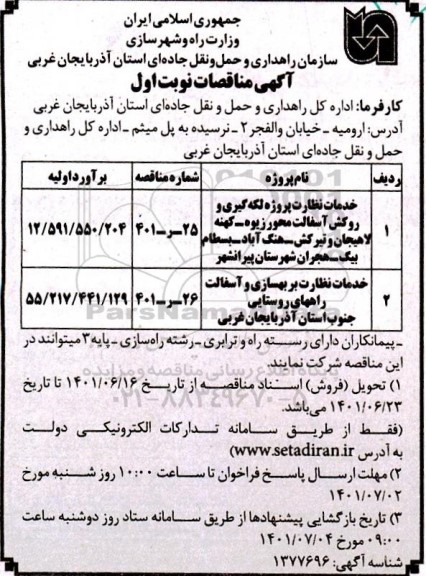 جمهوری اسلامی ایران
وزارت راه وشهرسازی
سازمان راهداری و حمل ونقل جاده‌ای استان آذربایجان غربی
آگهی مناقصات نوبت اول
کارفرما: اداره کل راهداری و حمل و نقل جاده‌ای استان آذربایجان غربی
آدرس: ارومیه ـ خیابان والفجر ۲ ـ نرسیده به پل میثم ـ اداره کل راهداری و
حمل و نقل جاده‌ای استان آذربایجان غربی
ردیف نام پروژه شماره مناقصه برآورد اولیه
۱ خدمات نظارت پروژه لکه گیری و
روکش آسفالت محور زیوه ـ کهنه
لاهیجان و تیرکش ـ هنگ آباد ـ بسطام
بیگ ـ هجران شهرستان پیرانشهر
۲۵ـ رـ ۴۰۱ ۱۲/۵۹۱/۵۵۰/۲۰۴
۲ خدمات نظارت بر بهسازی و آسفالت
راههای روستایی
جنوب استان آذربایجان غربی
۲۶ـ رـ ۴۰۱ ۵۵/۲۱۷/۴۴۱/۱۲۹
ـ پیمانکاران دارای رسته راه و ترابری ـ رشته راهسازی ـ پایه ۳ میتوانند در
این مناقصه شرکت نمایند
۱) تحویل (فروش) اسناد مناقصه از تاریخ ۱۴۰۱/۰۶/۱۶ تا تاریخ
۱۴۰۱/۰۶/۲۳ می‌باشد.
(فقط از طریق سامانه تدارکات الکترونیکی دولت
به آدرس www.setadiran.ir)
۲) مهلت ارسال پاسخ فراخوان تا ساعت ۱۰:۰۰ روز شنبه مورخ
۱۴۰۱/۰۷/۰۲
۳) تاریخ بازگشایی پیشنهادها از طریق سامانه ستاد روز دوشنبه ساعت
۰۹:۰۰ مورخ ۱۴۰۱/۰۷/۰۴
شناسه آگهی: ۱۳۷۷۶۹۶
۰۲۱-۸۸۳۴۹۶۷۰-۵